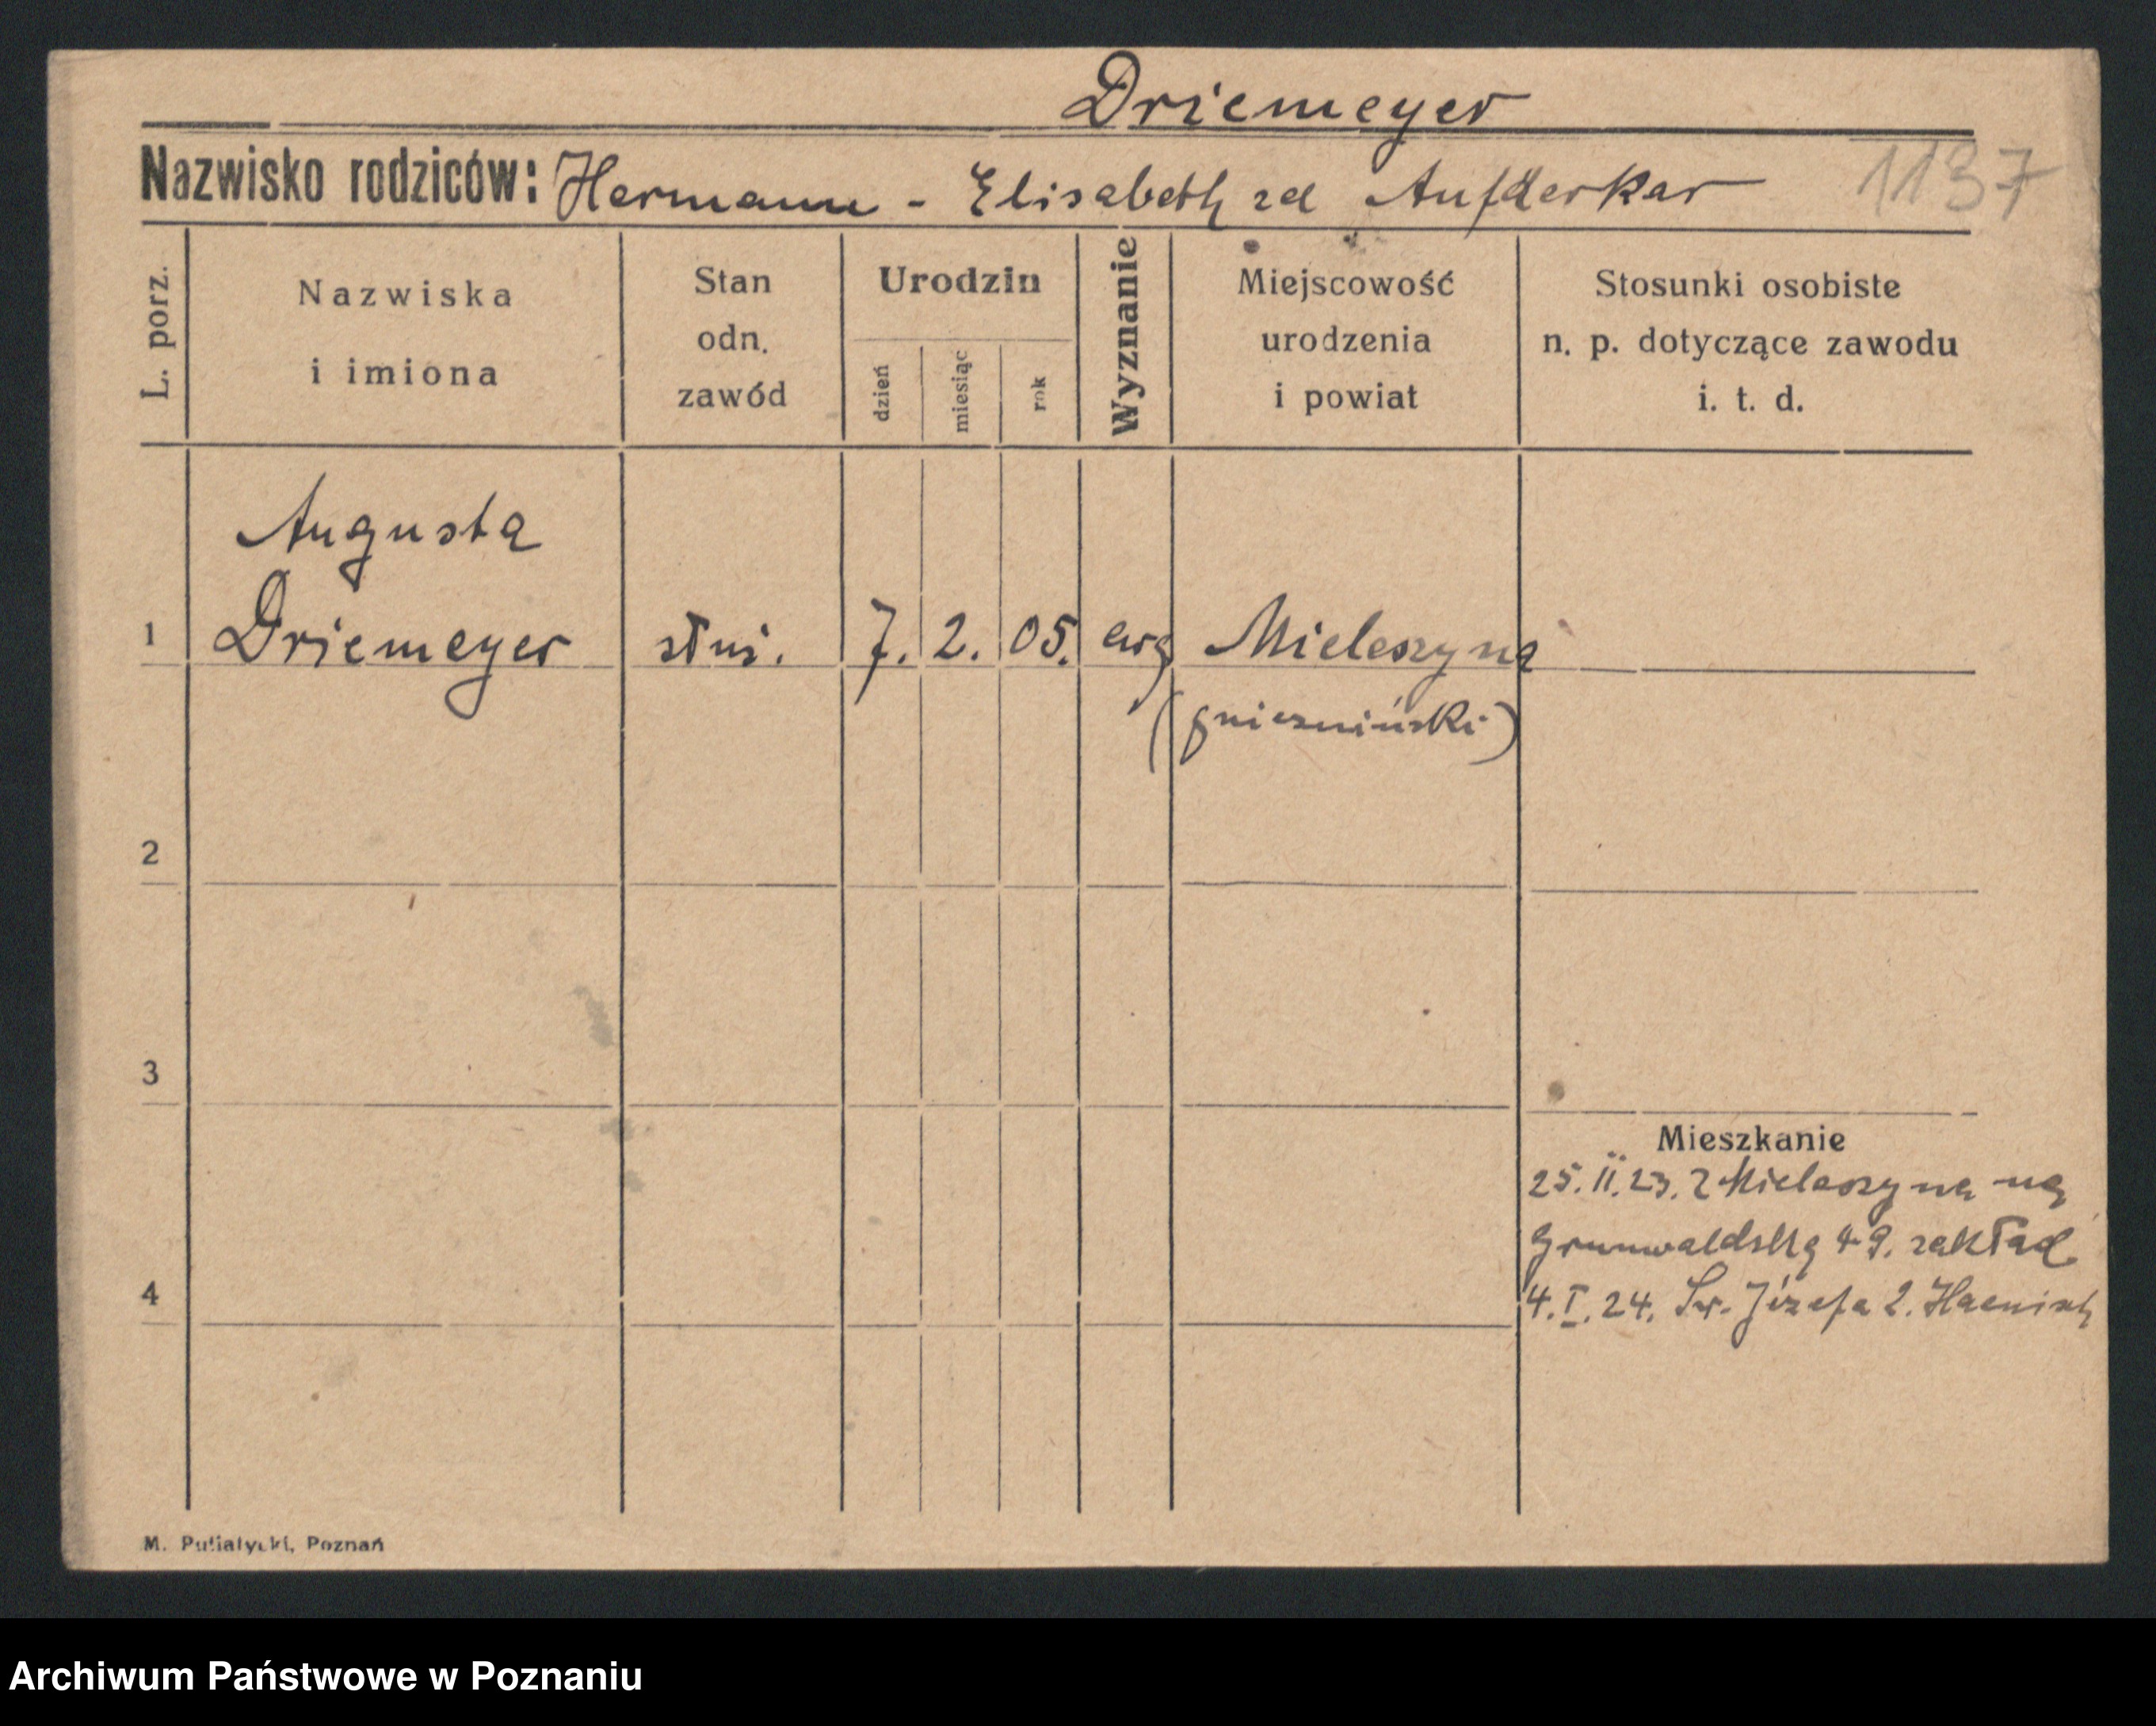 Driemeyer
Nazwisko rodziców: Hermann - Elisabeth zd Aufderkar
1137
L. porz.
Nazwiska
i imiona
Stan
odn.
zawód
Urodzin
dzień
miesiąc
rok
Wyznanie
Miejscowość
urodzenia
i powiat
Stosunki osobiste
n. p. dotyczące zawodu
i. t. d.
Augusta
1 Driemeyer służ. 7. 2. 05. ewg Mieleszyna
(gnieźniński)
2
3
Mieszkanie
25. II. 23. z Mieleszyna na
Grunwaldską 49. zakład
4
4. I. 24. Św. Józefa 2. Haenisch
M. Putiatycki, Poznań
Archiwum Państwowe w Poznaniu